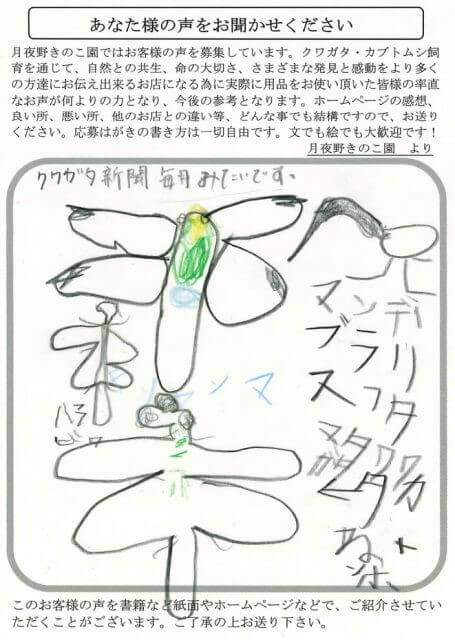 あなた様の声をお聞かせください
月夜野きのこ園ではお客様の声を募集しています。クワガタ・カブトムシ飼
育を通じて、自然との共生、命の大切さ、さまざまな発見と感動をより多く
の方達にお伝え出来るお店になる為に実際に用品をお使い頂いた皆様の率直
なお声が何よりの力となり、今後の参考となります。ホームページの感想、
良い所、悪い所、他のお店との違い等、どんな事でも結構ですので、お送り
ください。応募はがきの書き方は一切自由です。文でも絵でも大歓迎です！
月夜野きのこ園　より
クワガタ新聞 毎月 みたいです。
ヤンマ
このお客様の声を書籍など紙面やホームページなどで、ご紹介させてい
ただくことがございます。ご了承の上お送り下さい。